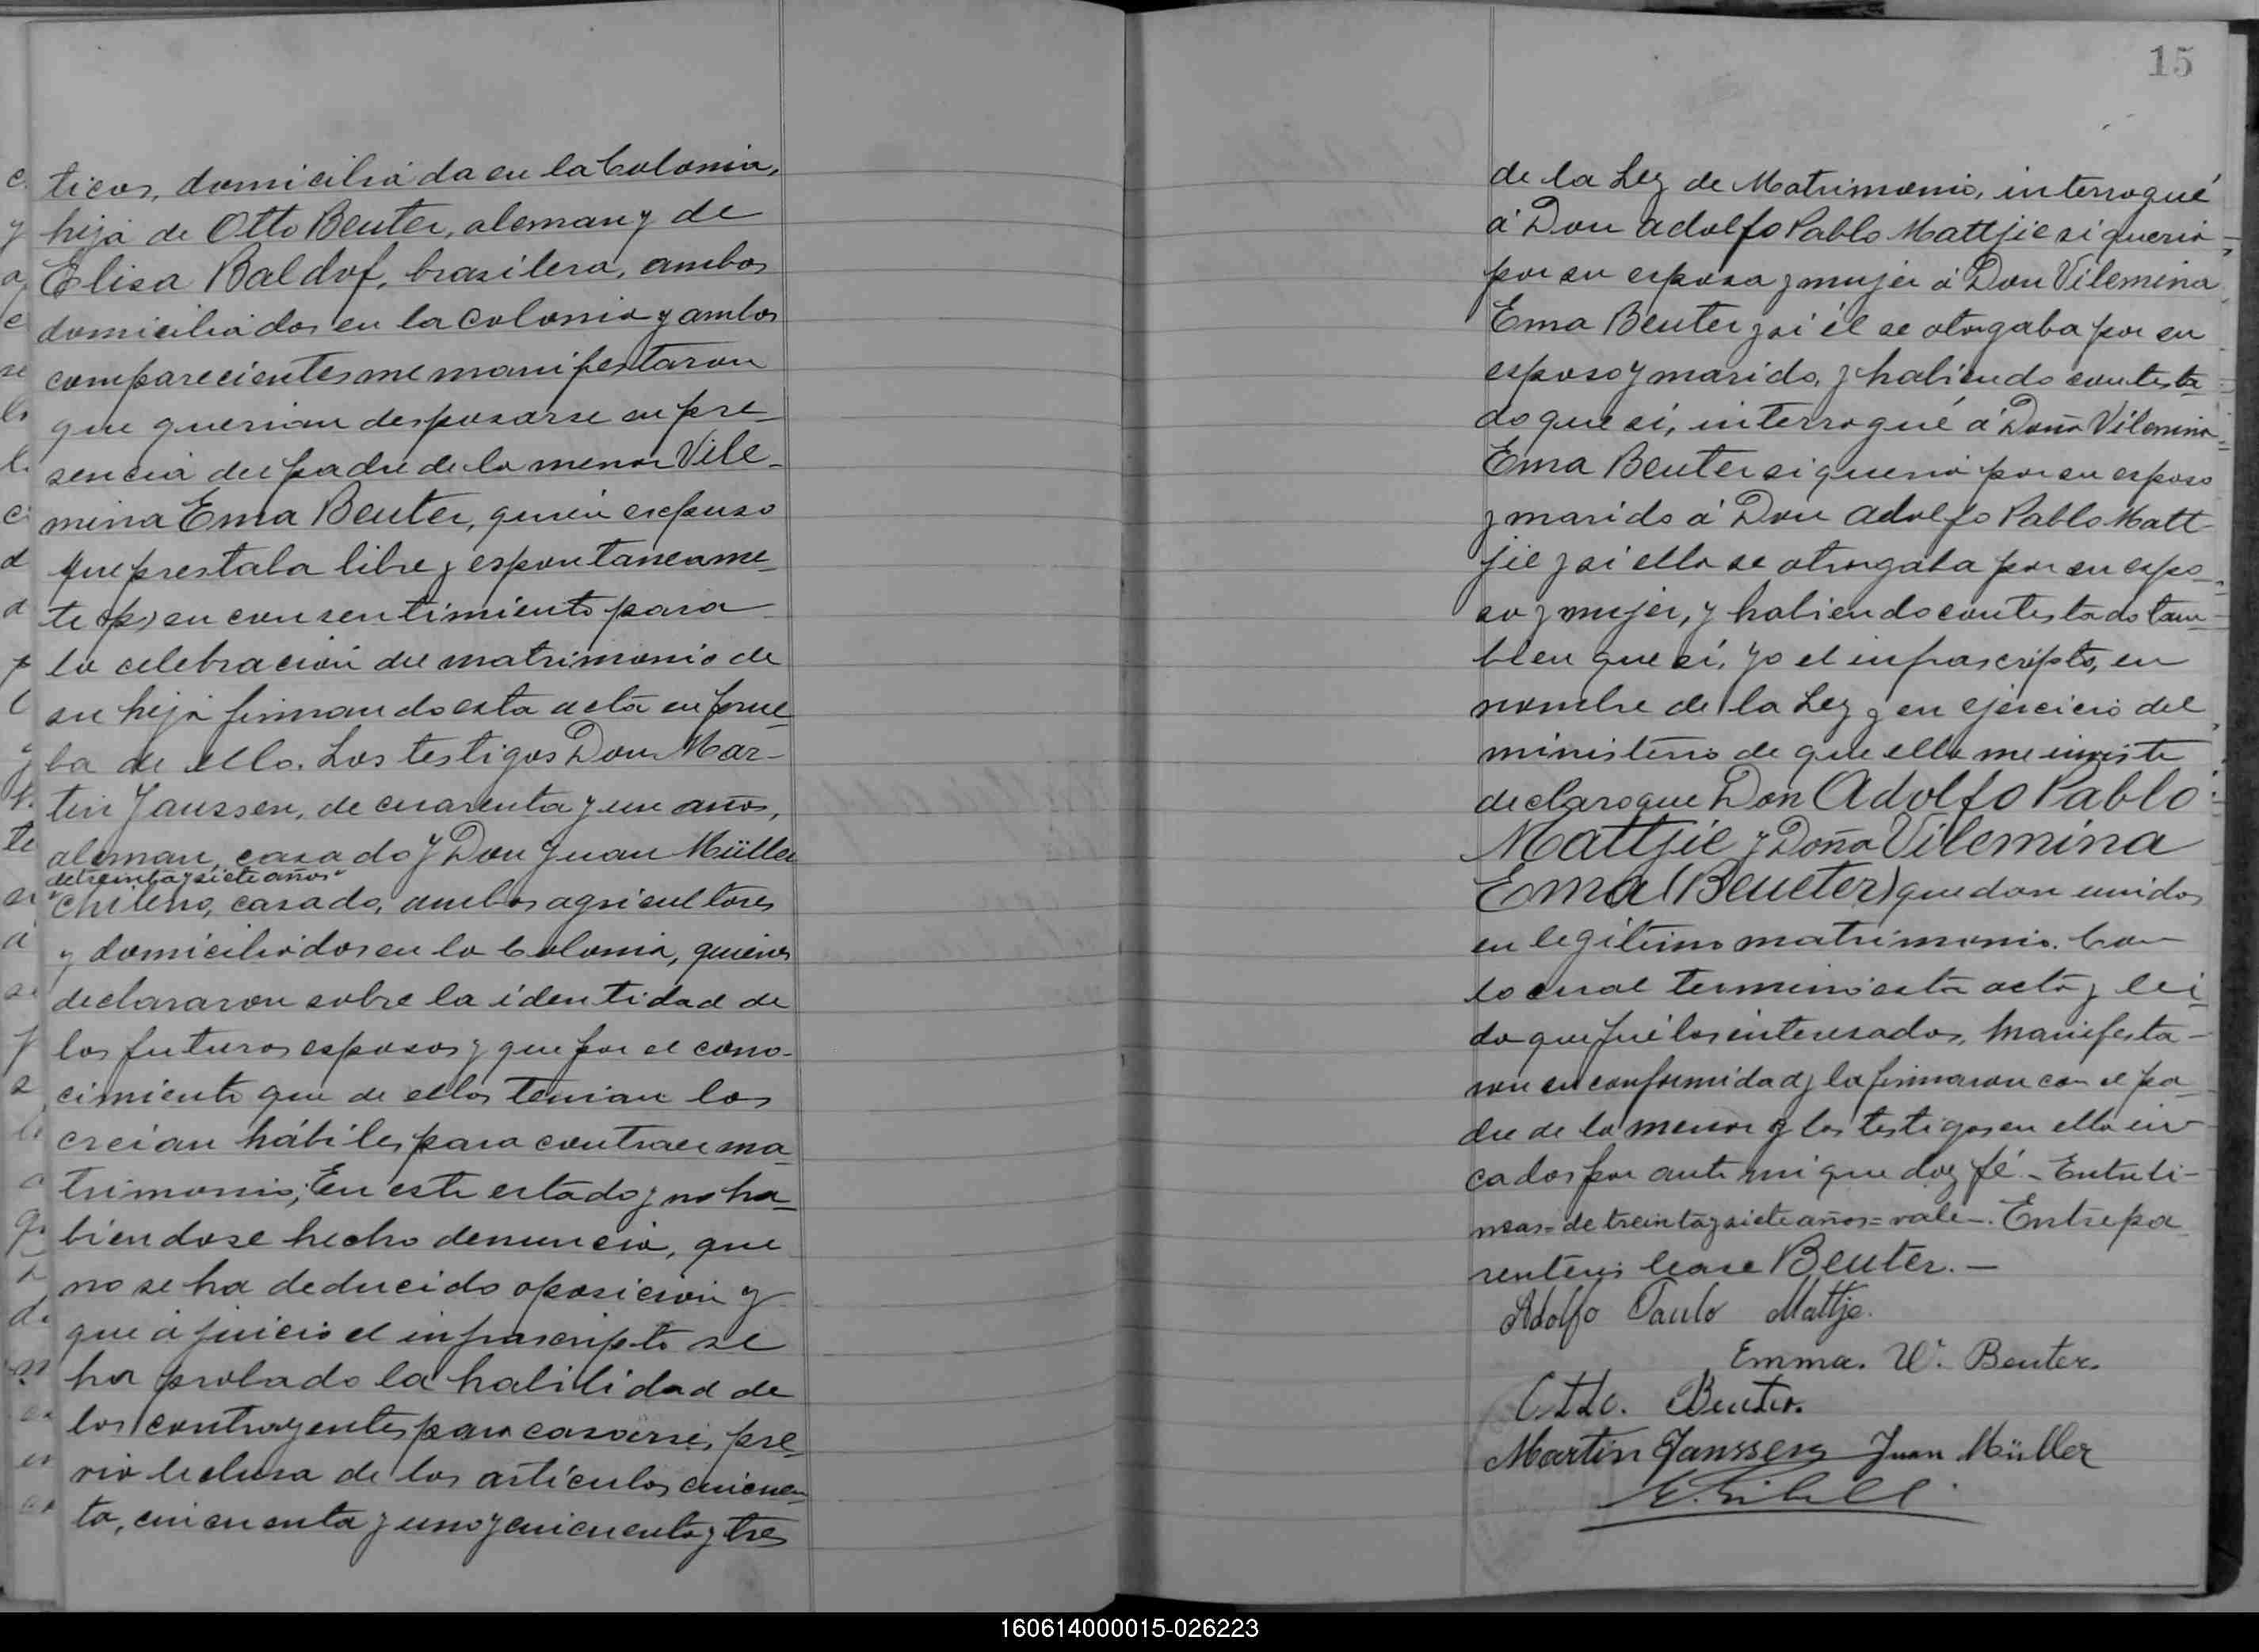 ticos, domiciliada en la Colonia,
hija de Otto Beuter, aleman y de
Elisa Baldof, brasilera, ambos
domiciliados en la colonia y ambos
comparecientes me manifestaron
que querian desposarse en pre-
sencia del padre de la menor Vile-
mina Ema Beuter, quien expuso
que prestaba libre y espontaneame-
te su consentimiento para
la celebracion del matrimonio de
su hija firmando esta acta en prue-
ba de ello. Los testigos Don Mar-
tin Janssen, de cuarenta y un años,
aleman, casado y Don Juan Müller
"de treinta y siete años"
chileno, casado, ambos agricultores
y domiciliados en la Colonia, quienes
declararon sobre la identidad de
los futuros esposos y que por el cono-
cimiento que de ellos tenian los
creían hábiles para contraer ma-
trimonio; En este estado y no ha-
biendose hecho denuncia, que
no se ha deducido oposicion y
que á juicio el infrascripto se
ha probado la habilidad de
los contrayentes para casarse, pre-
via lectura de los artículos cincuen-
ta, cincuenta y uno y cincuenta y tres
15
de la Ley de Matrimonio, interrogué
á Don Adolfo Pablo Mattjie si queria
por su esposa y mujer á Don Vilemina
Ema Beuter y si él se otorgaba por su
esposo y marido, y habiendo contesta-
do que sí, interrogué á Doña Vilemina
Ema Beuter si queria por su esposo
y marido á Don Adolfo Pablo Matt-
jie y si ella se otorgaba por su espo-
sa y mujer, y habiendo contestado tam-
bien que sí, yo el infrascripto, en
nombre de la Ley y en ejercicio del
ministerio de que ella me inviste
declaro que Don Adolfo Pablo
Mattjie y Doña Vilemina
Ema (Beueter) quedan unidos
en legítimo matrimonio. Con
lo cual terminó esta acta y lei-
da que fué los interesados, manifesta-
ron su conformidad y la firmaron con el pa-
dre de la menor y los testigos en ella in-
cados por ante mi que doy fé - Entreli-
neas = de treinta y siete años = vale -. Entrepa-
rentesis lease Beuter. -
Adolfo Paulo Mattje.
Emma. W. Beuter.
Otto. Beuter.
Martin Janssen Juan Müller
160614000015-026223